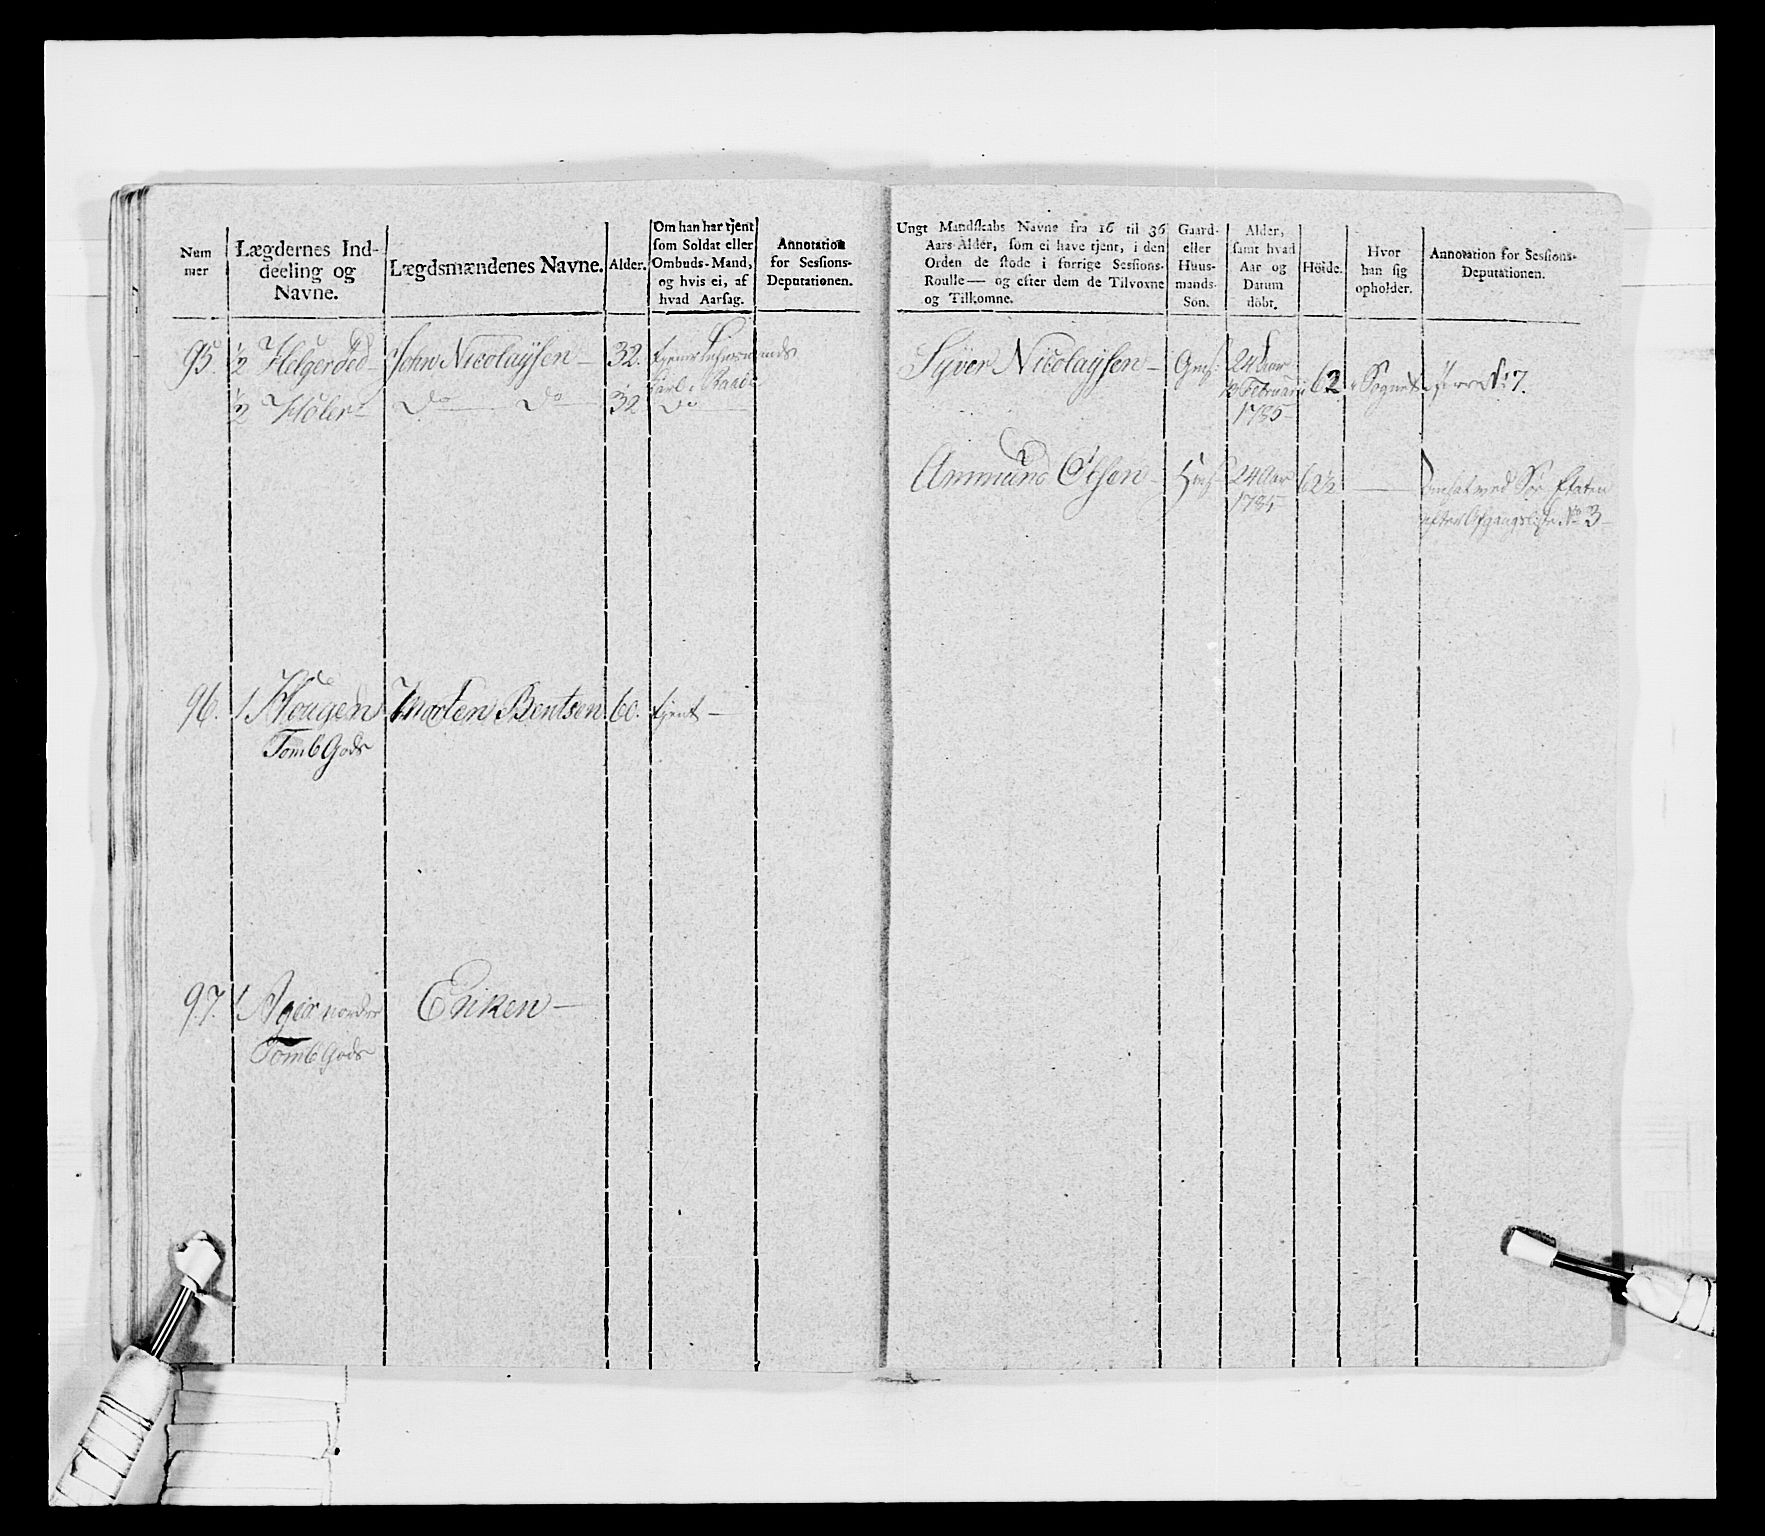 Num
mer
Lægdernes Ind-
deeling og
Navne.
Lægdsmændenes Navne.
Alder.
Om han har tjent
som Soldat eller
Ombuds-Mand,
og hvis ei, af
hvad Aarsag.
Annotation
for Sessions-
Deputationen.
95. ½ Helgerød John Nicolaysen 32.
½ Høler Do Do 32 Do
96. 1 Hougen Morten Bentsen 60. tjent
Tomb Gods
97. 1 nordre Enken
Tomb Gods
Ungt Mandskabs Navne fra 16 til 36
Aars Alder, som ei have tjent, i den
Orden de stode i forrige Sessions-
Roulle— og efter dem de Tilvoxne
og Tilkomne.
Gaard-
eller
Huus-
mands-
Søn.
Alder,
samt hvad
Aar og
Datum
döbt.
Höide.
Hvor
han sig
opholder.
Annotation for Sessions-
Deputationen.
Syver Nicolaysen Gms: 24 Aar 62 i Sognet No 7.
Februarii
1785
Ammund Olsen Hms 24 Aar 62½ ved Søe Etaten
1785 efter Afgangsliste No 3